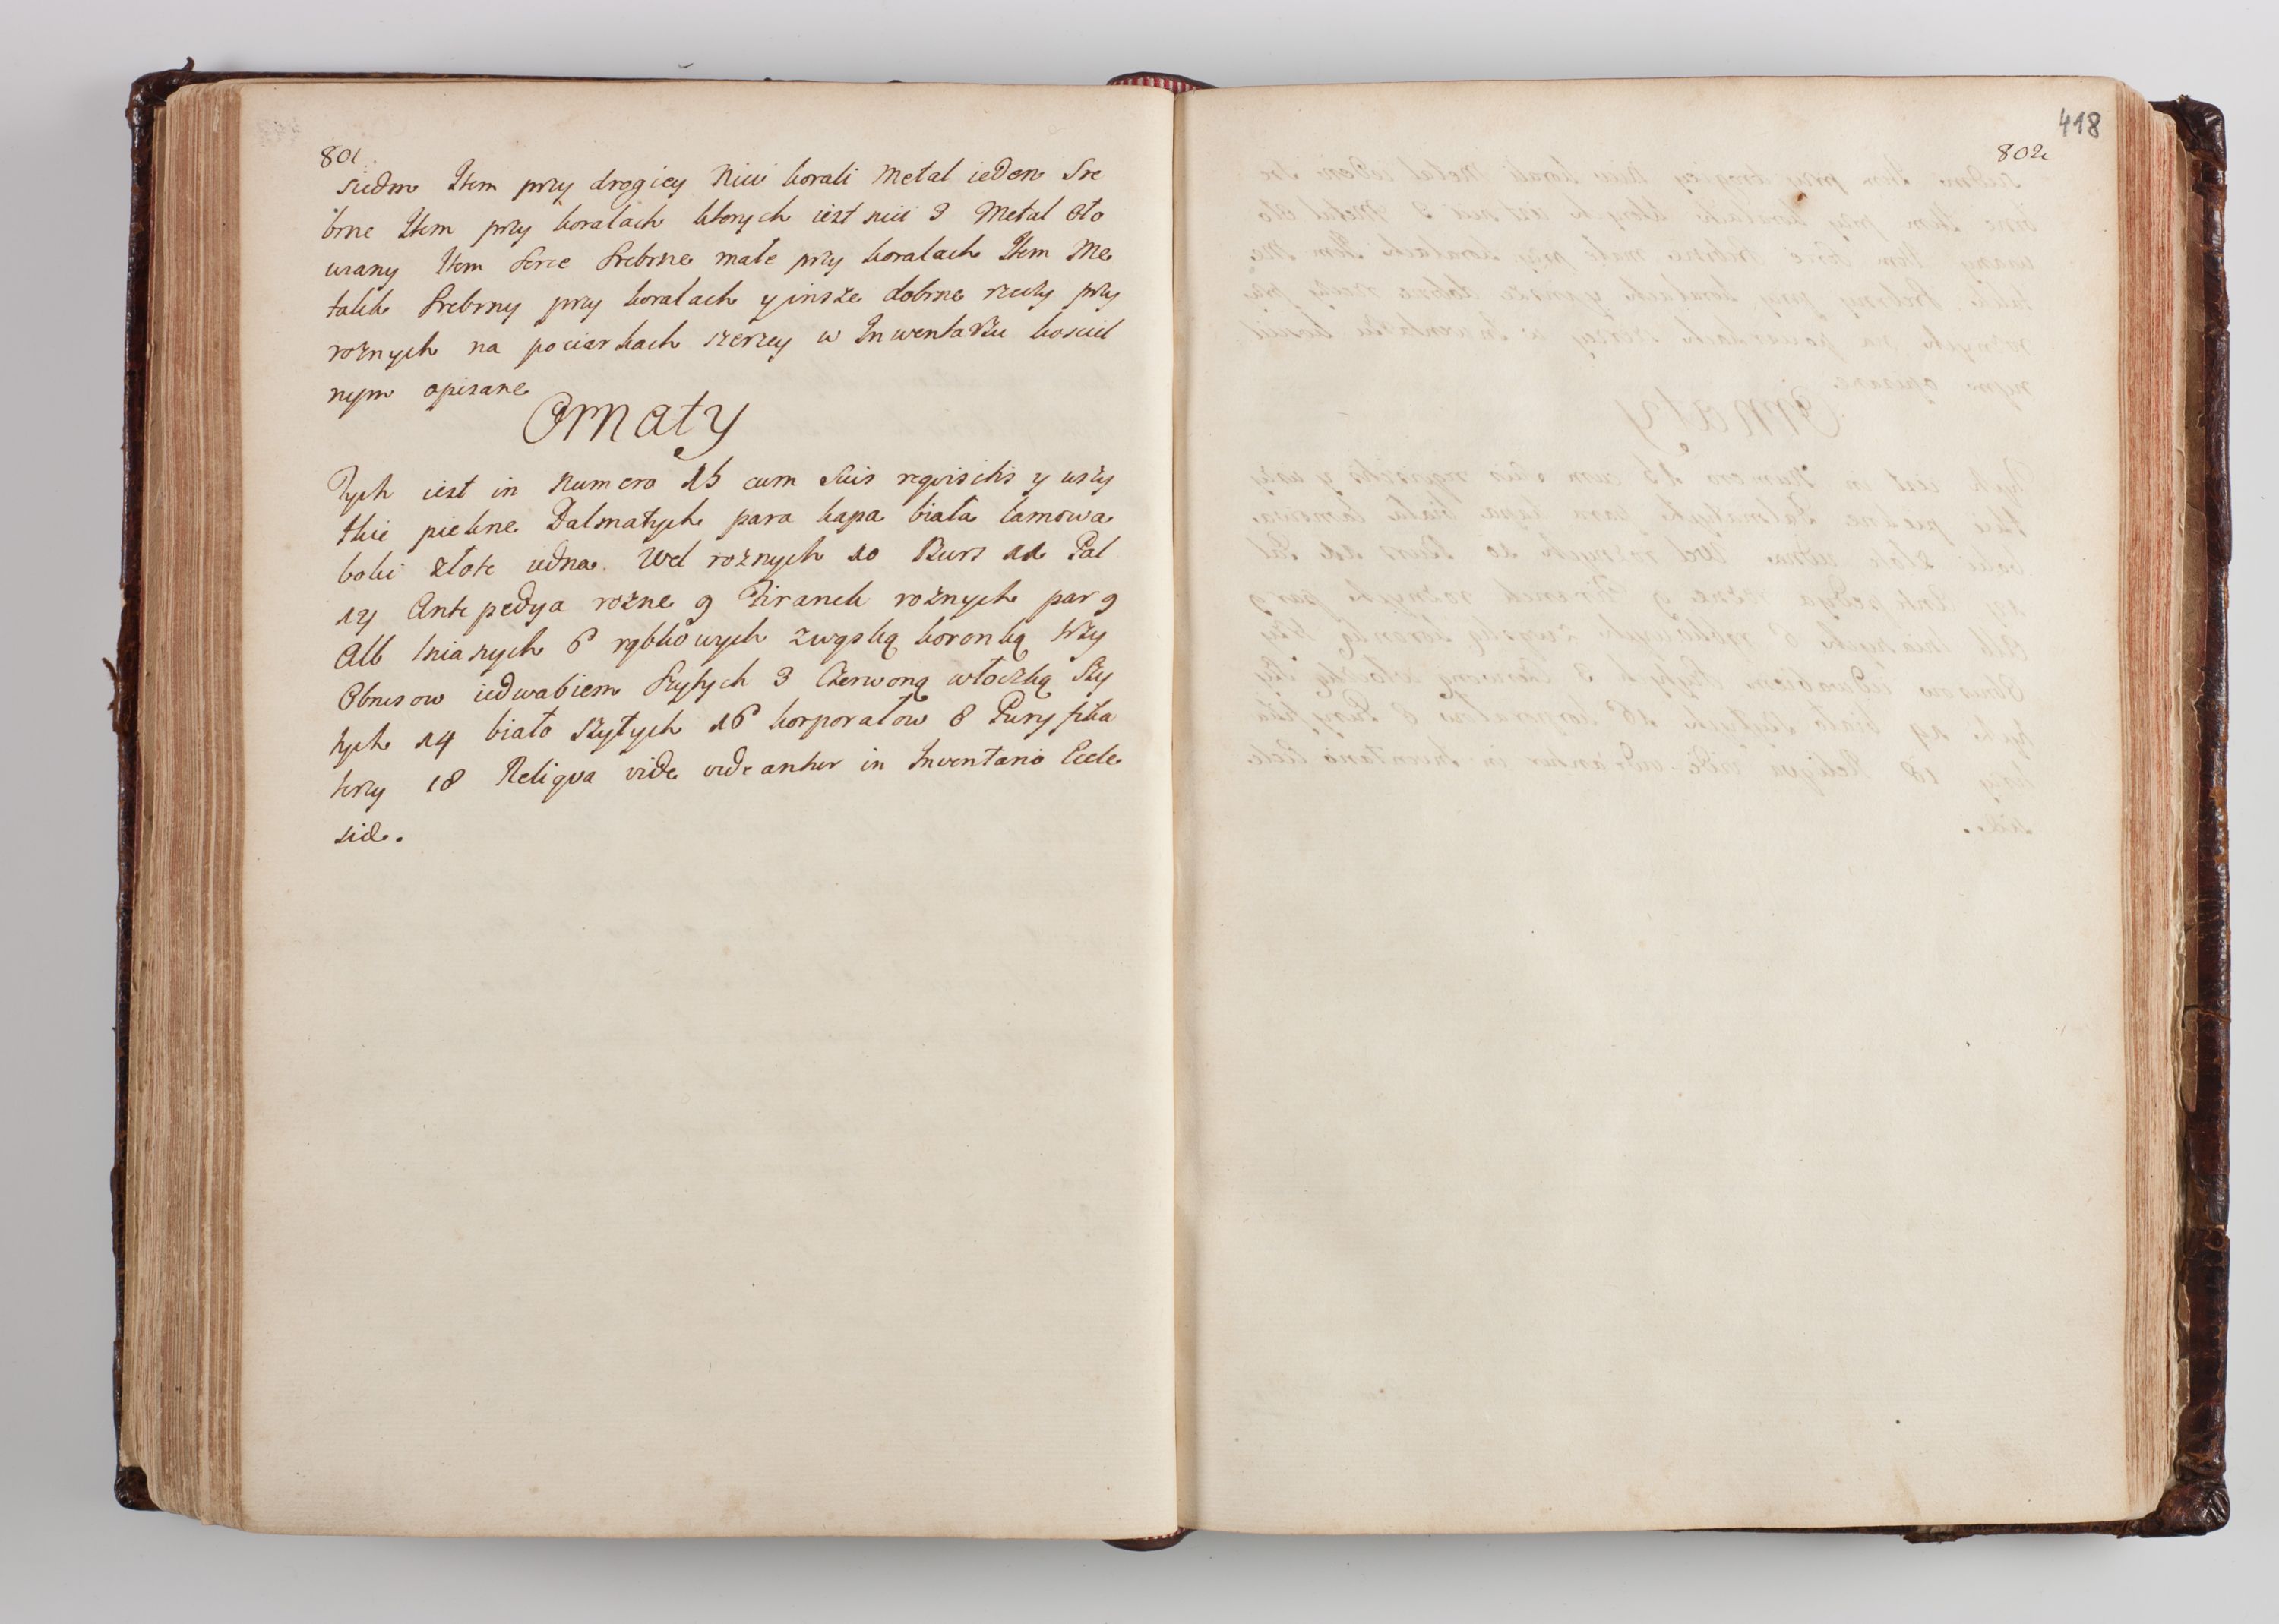 801
siedm Item przy drogiey Nici korali Metal ieden Sre
brne Item przy koralach ktorych iest nici 3 Metal Oto
wiany Item Serce Srebrne małe przy koralach Item Me
talik Srebrny przy koralach y insze dobrne rzeczy przy
rożnych na paciorkach szerzey w Inwentarzu kosciel
nym opisane
Ornaty
Tych iest in Numero 15 cum suis reqvisitis y wszy
tkie piekne Dalmatyk para kapa biała lamowa
boki złote iedna. Wel rożnych 10 Burs 11 Pal
12 Antepedya rożne 9 Firanek rożnych par 9
Alb lnianych 6 rąbkowych z wąską koronką trzy
Obrusow iedwabiem szytych 3 Czerwoną włoczką Szy
tych 14 biało szytych 16 korporałow 8 Puryfika
terzy 18 Reliqva vide videantur in Inventario Eccle
siæ.
418
802